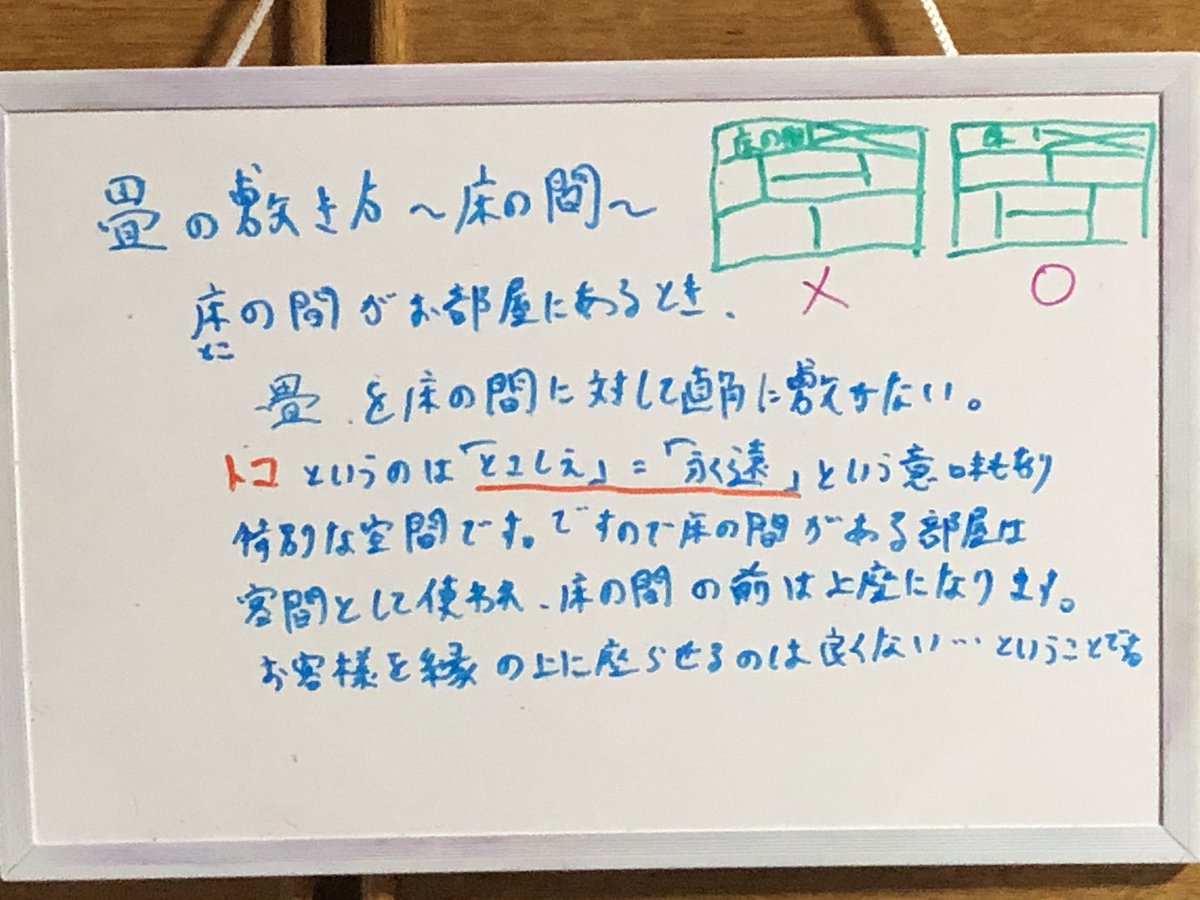 畳の敷き方〜床の間〜
床の間
床
×
○
床の間がお部屋にあるとき、
とこ
畳を床の間に対して直角に敷かない。
トコというのは「とこしえ」=「永遠」という意味もあり
特別な空間です。ですので床の間がある部屋は
客間として使われ、床の間の前は上座になります。
お客様を縁の上に座らせるのは良くない…ということです